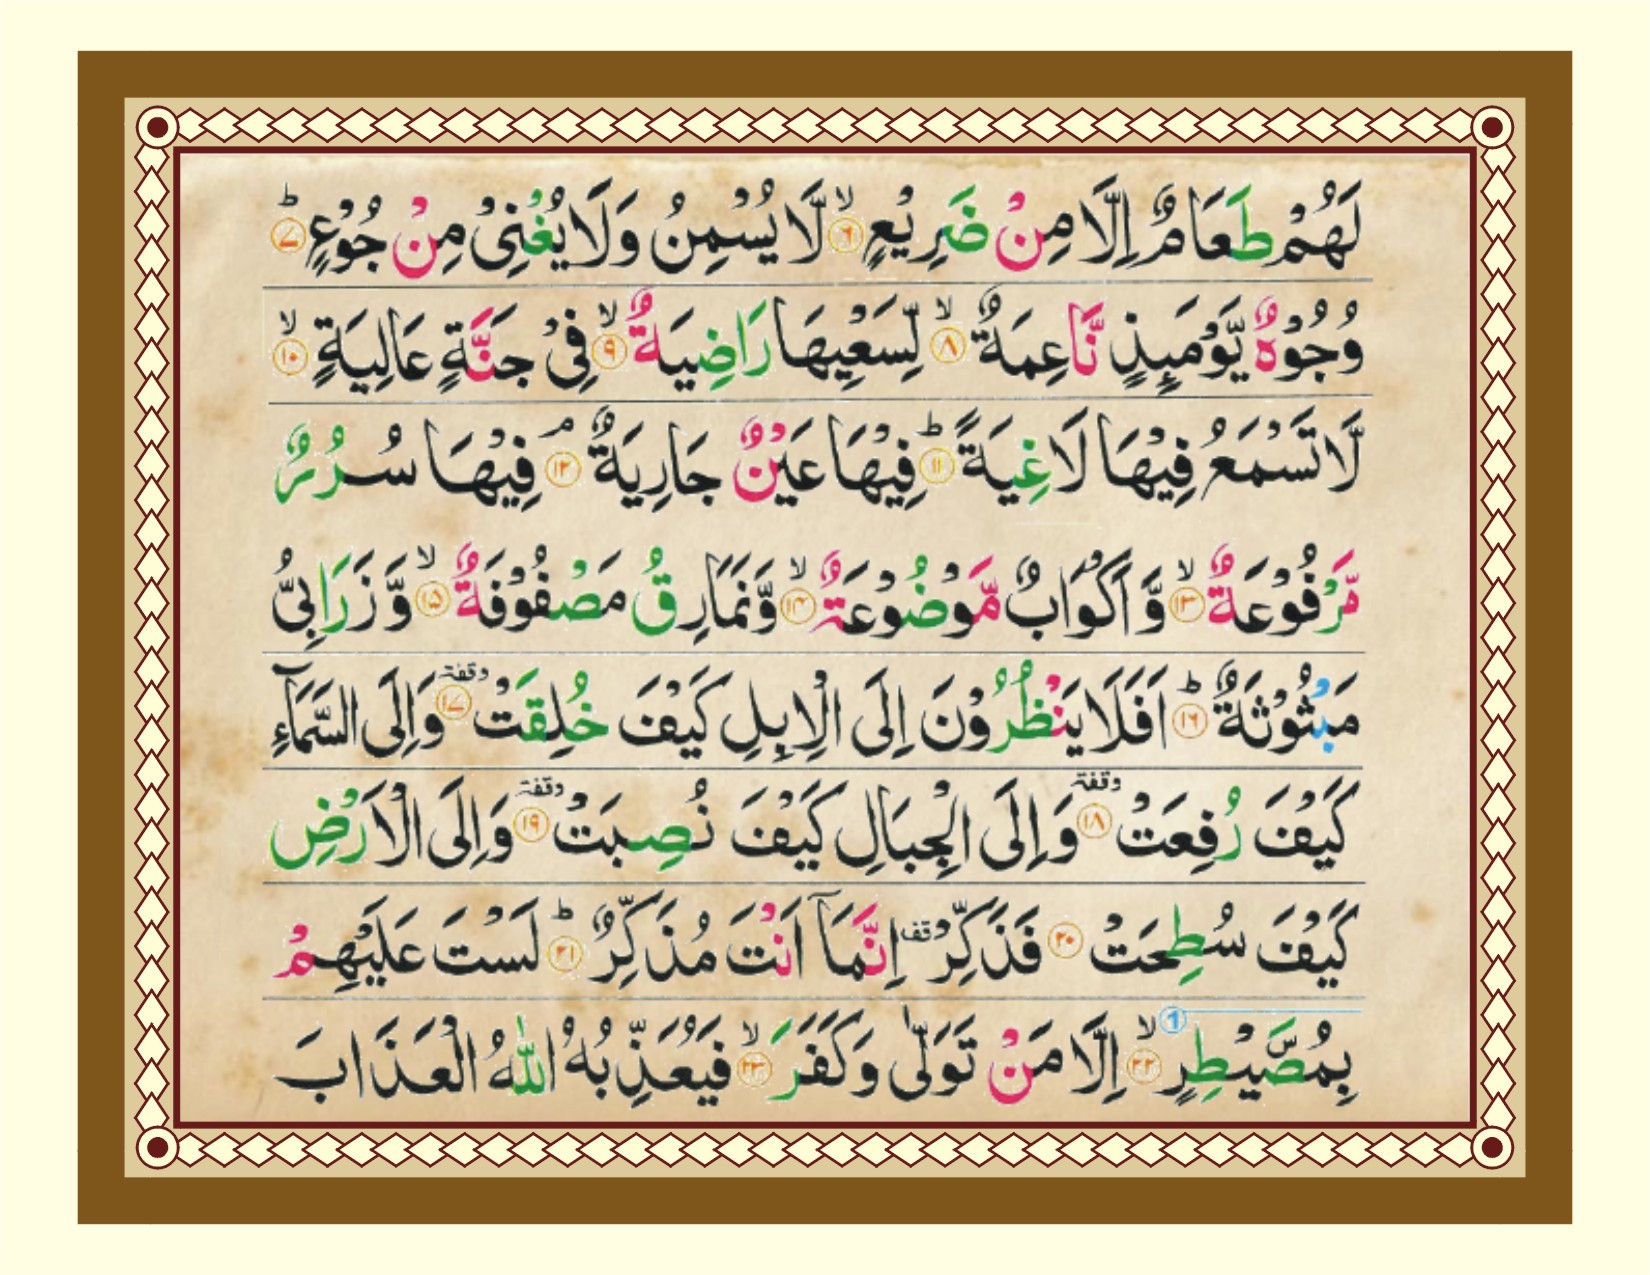 لَهُمْ طَعَامٌ اِلَّا مِنْ ضَرِيْعٍ ۙ﴿۶﴾ لَّا يُسْمِنُ وَلَا يُغْنِيْ مِنْ جُوْعٍ ؕ﴿۷﴾
وُجُوْهٌ يَّوْمَىِٕذٍ نَّاعِمَةٌ ۙ﴿۸﴾ لِّسَعْيِهَا رَاضِيَةٌ ۙ﴿۹﴾ فِيْ جَنَّةٍ عَالِيَةٍ ۙ﴿۱۰﴾
لَّا تَسْمَعُ فِيْهَا لَاغِيَةً ؕ﴿۱۱﴾ فِيْهَا عَيْنٌ جَارِيَةٌ ۘ﴿۱۲﴾ فِيْهَا سُرُرٌ
مَّرْفُوْعَةٌ ۙ﴿۱۳﴾ وَّ اَكْوَابٌ مَّوْضُوْعَةٌ ۙ﴿۱۴﴾ وَّنَمَارِقُ مَصْفُوْفَةٌ ۙ﴿۱۵﴾ وَّ زَرَابِيُّ
مَبْثُوْثَةٌ ؕ﴿۱۶﴾ اَفَلَا يَنْظُرُوْنَ اِلَى الْاِبِلِ كَيْفَ خُلِقَتْ وقفة﴿۱۷﴾ وَاِلَى السَّمَآءِ
كَيْفَ رُفِعَتْ وقفة﴿۱۸﴾ وَاِلَى الْجِبَالِ كَيْفَ نُصِبَتْ وقفة﴿۱۹﴾ وَاِلَى الْاَرْضِ
كَيْفَ سُطِحَتْ ﴿۲۰﴾ فَذَكِّرْ قف اِنَّمَآ اَنْتَ مُذَكِّرٌ ؕ﴿۲۱﴾ لَسْتَ عَلَيْهِمْ
بِمُصَۜيْطِرٍ ①ۙ﴿۲۲﴾ اِلَّا مَنْ تَوَلّٰى وَكَفَرَ ۙ﴿۲۳﴾ فَيُعَذِّبُهُ اللّٰهُ الْعَذَابَ